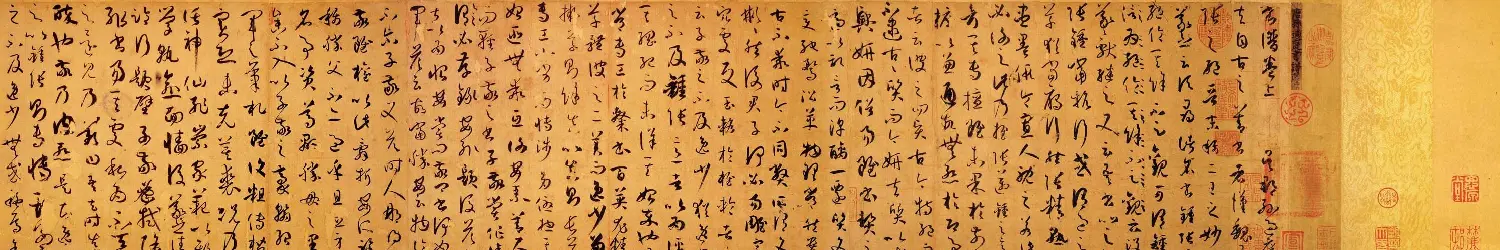 書譜卷上 吳郡孫過庭撰
夫自古之善書者漢魏有鍾
張之絕晉末稱二王之妙王
羲之云頃尋諸名書鍾張信
為絕倫其餘不足觀可謂鍾張
云沒而羲獻繼之又云吾書比之
鍾張鍾當抗行或謂過之張
草猶當雁行然張精熟池水
盡墨假令寡人耽之若此未
必謝之此乃推張邁鍾之意也
考其專擅雖未果於前規
摭以兼通故無慚於即事評
者云彼之四賢古今特絕而今
不逮古古質而今妍夫質以代
興妍因俗易雖書契之作適
以記言而淳醨一遷質文三
變馳騖沿革物理常然貴能
古不乖時今不同弊所謂文質彬
彬然後君子何必易雕宮於
穴處反玉輅於椎輪者乎又云
子敬之不及逸少猶逸少之
不及鍾張意者以為評得
其綱紀而未詳其始卒也且元
常專工於隸書百英尤精於
草體彼之二美而逸少兼之
擬草則餘真比真則長草雖
專工小劣而博涉多優總其終
始匪無乖互謝安素善尺牘
而輕子敬之書子敬嘗作佳書與之
謂必存錄安輒題後答之甚
以為恨安嘗問敬卿書何如右
軍答云故當勝安云物論殊
不爾子敬又答時人那得知
敬雖權以此辭折安所鑒自
稱勝父不亦過乎且立身揚
名事資尊顯勝母之里曾
參不入以子敬之豪翰紹右
軍之筆札雖復粗傳楷則
實恐未克箕裘況乃假
託神仙恥崇家範以斯成
學孰愈面牆後羲之往都臨
行題壁子敬密拭除之輒
書易其處私為不惡羲
之還見乃歎曰吾去時真大
醉也敬乃內慚是知逸少
之比鍾張則專博斯別子敬
之不及逸少無或疑焉